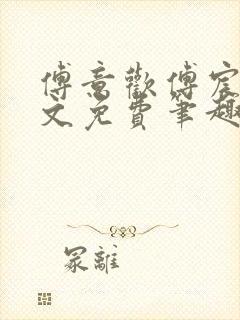 傅意歡傅宸
文免費筆趣
冢離